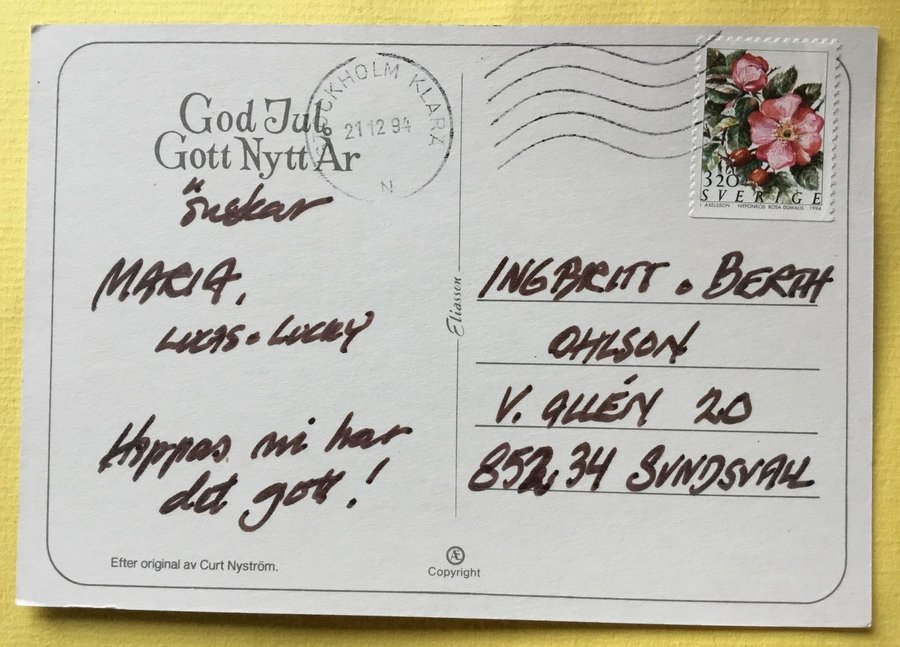 God Jul
Gott Nytt År
önskar
MARIA,
LUCAS • LUCKY
Hoppas ni har
det gott!
Efter original av Curt Nyström.
STOCKHOLM KLARA
21 12 94
N
Eliasson
Æ
Copyright
3.20
SVERIGE
I. AXELSSON NYPONROS ROSA DUMALIS 1994
INGBRITT • BERTH
OHLSON
V. ALLÉN 20
852 34 SUNDSVALL